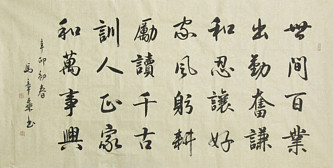 世間百業
出勤奮謙
和忍讓好
家風躬耕
勵讀千古
訓人正家
和萬事興
辛卯初春